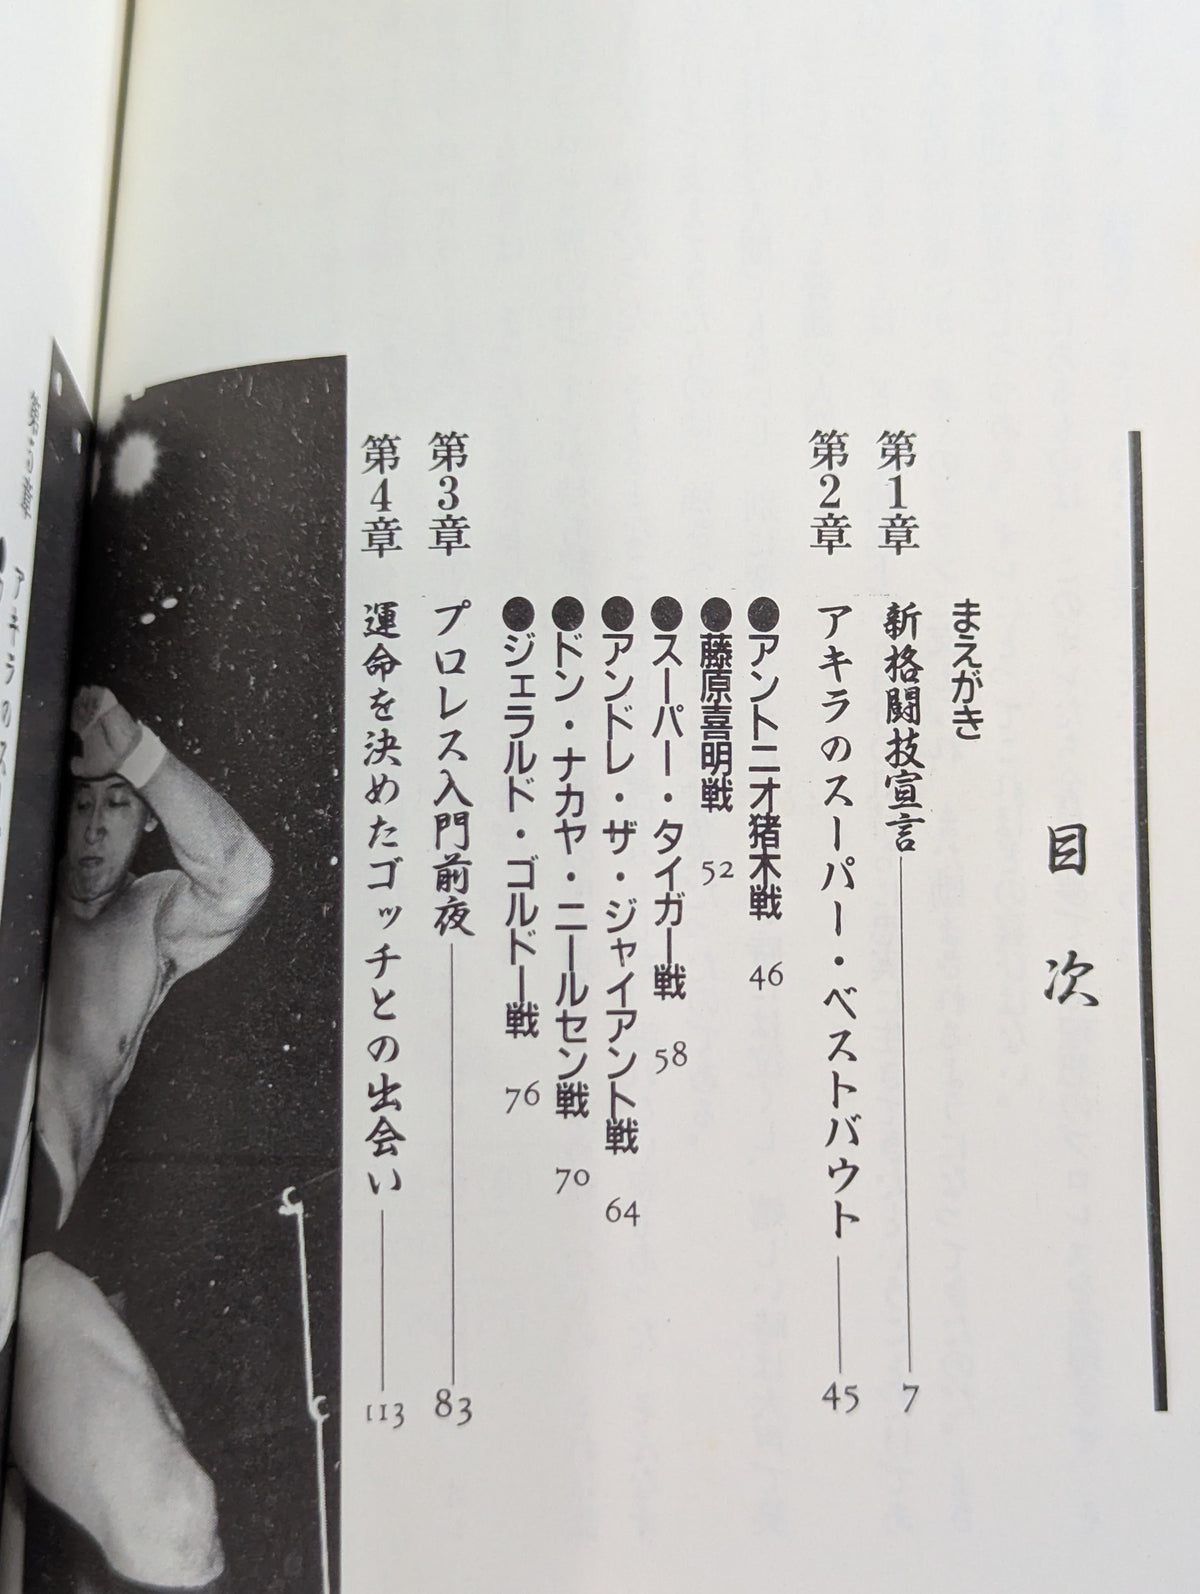 目次
まえがき
第1章 新格闘技宣言 7
第2章 アキラのスーパー・ベストバウト 45
●アントニオ猪木戦 46
●藤原喜明戦 52
●スーパー・タイガー戦 58
●アンドレ・ザ・ジャイアント戦 64
●ドン・ナカヤ・ニールセン戦 70
●ジェラルド・ゴルドー戦 76
第3章 プロレス入門前夜 83
第4章 運命を決めたゴッチとの出会い 113
アキラのス